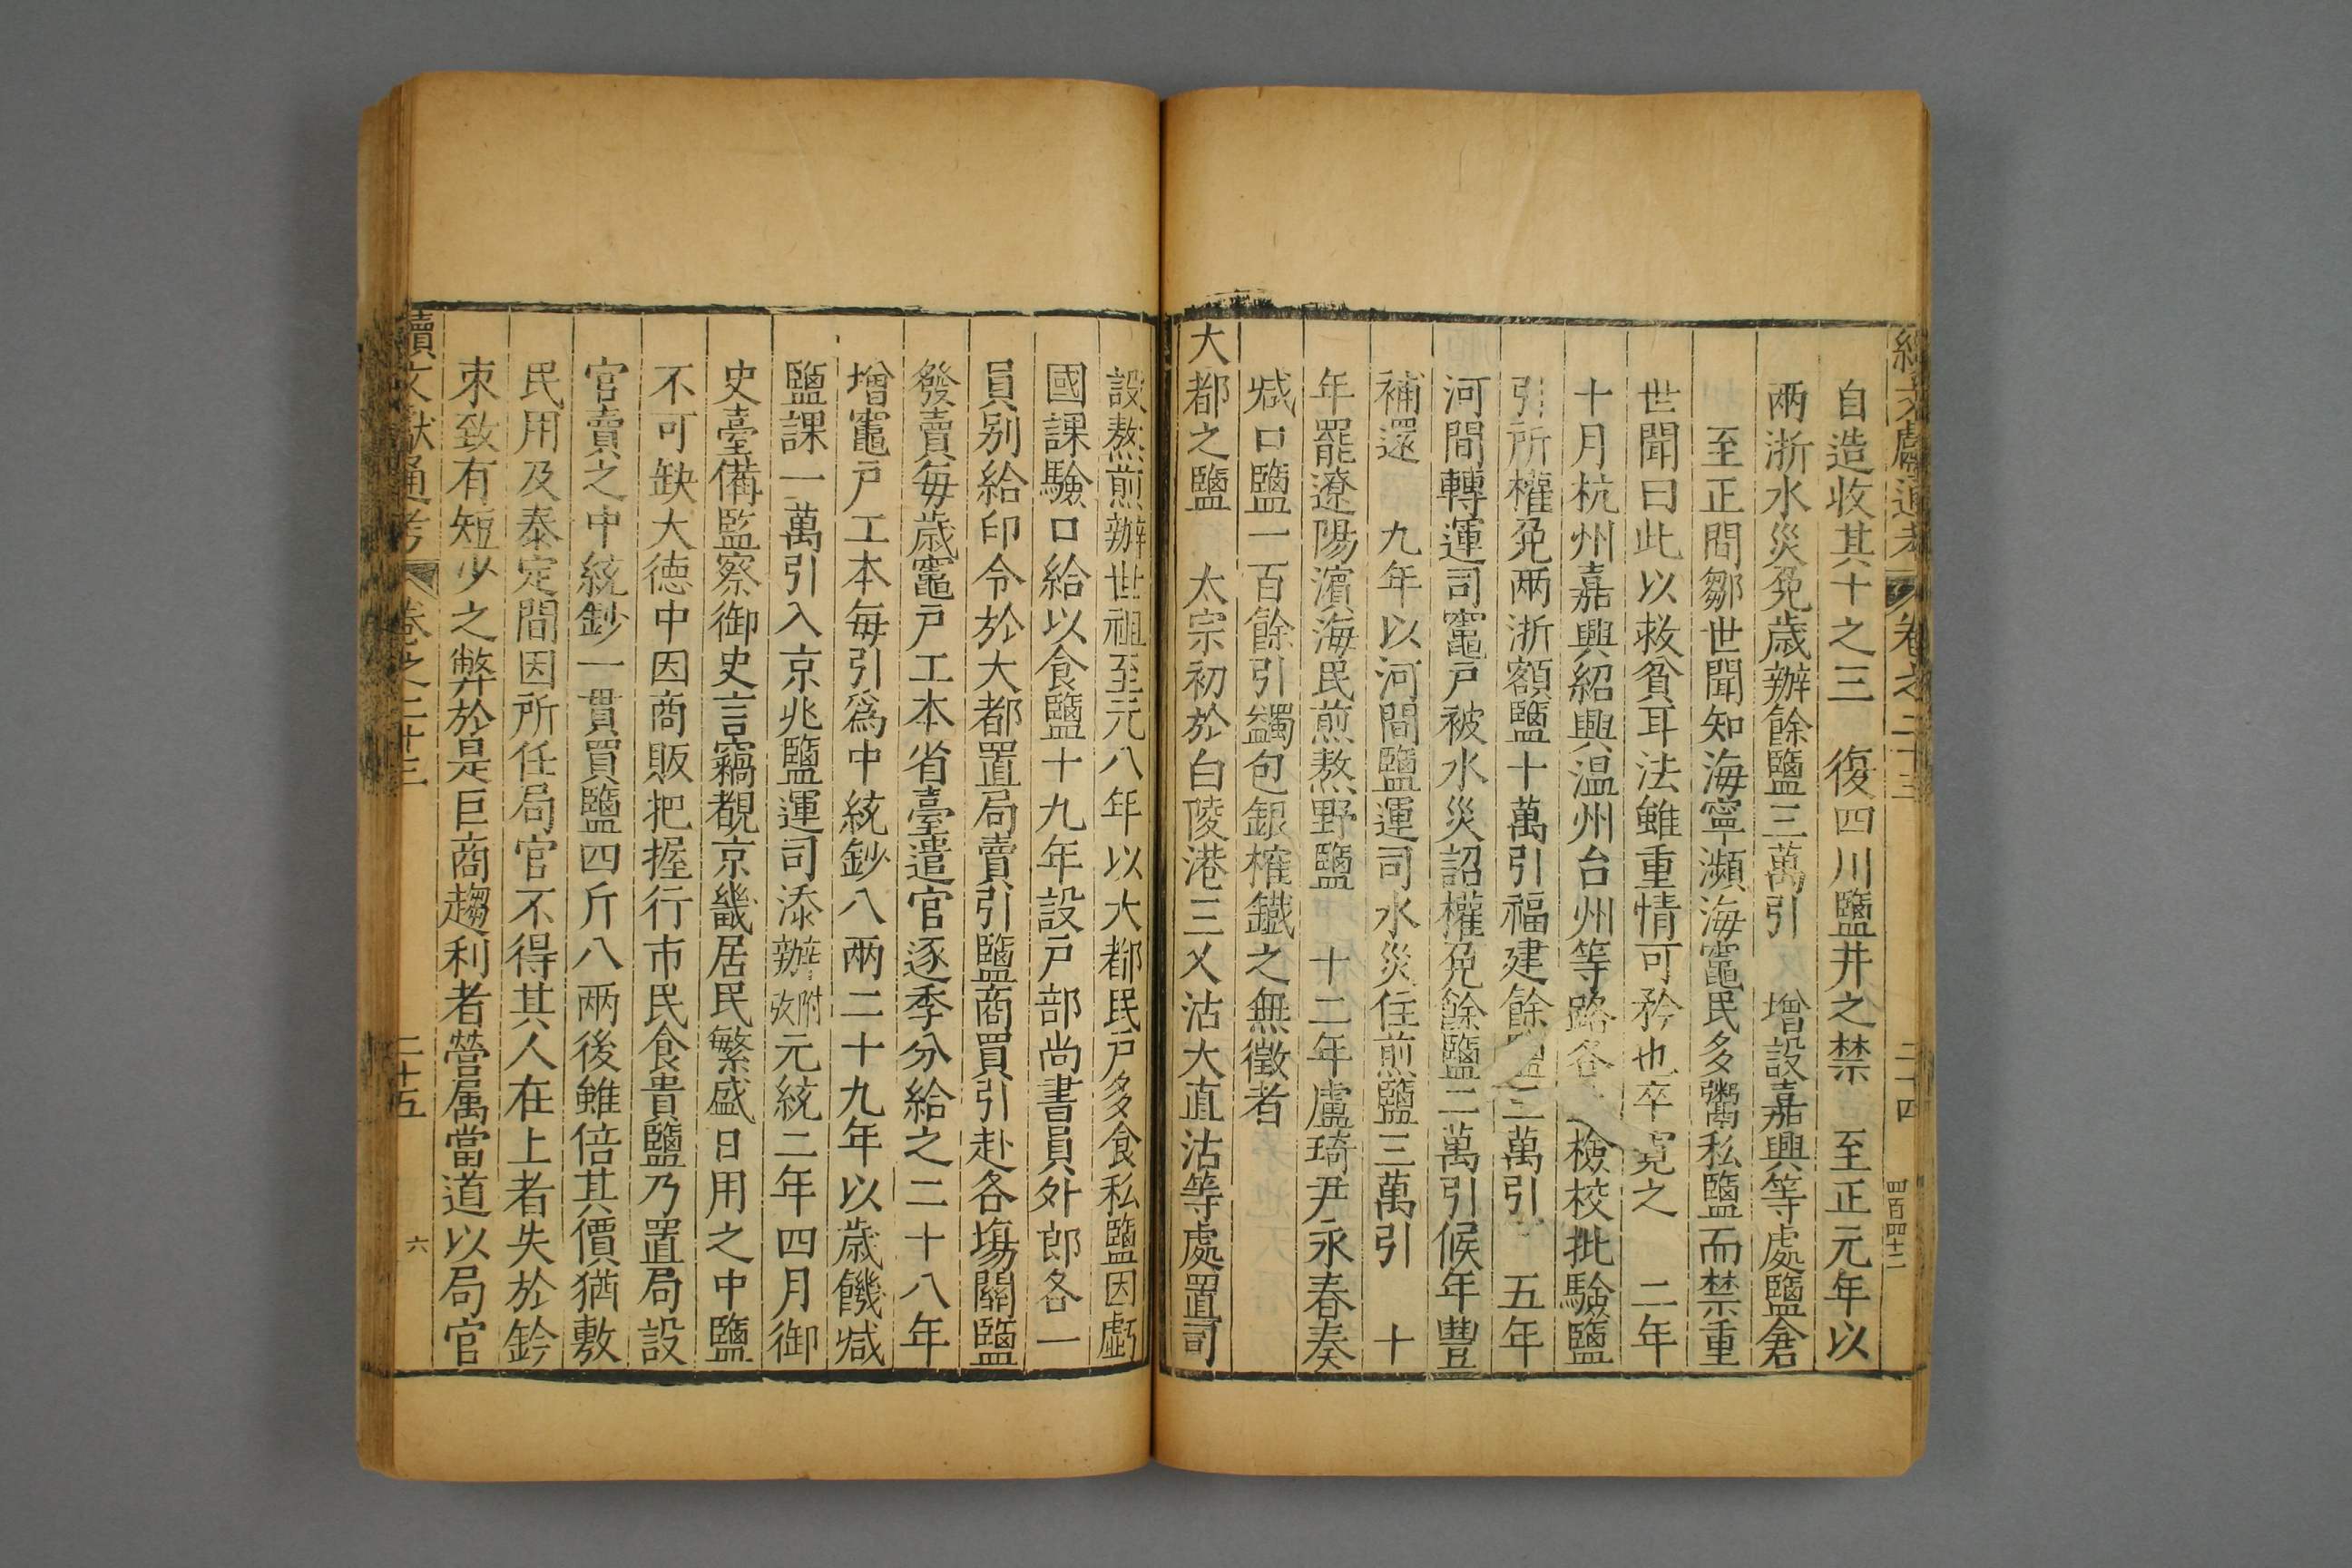 續文獻通考 卷之二十三 二十四 四百四十二
自造收其十之三 復四川鹽井之禁 至正元年以
兩浙水災免歲辦餘鹽三萬引 增設嘉興等處鹽倉
至正間鄒世聞知海寧瀕海竈民多鬻私鹽而禁重
世聞曰此以救貧耳法雖重情可矜也卒寬之 二年
十月杭州嘉興紹興温州台州等路各 檢校批驗鹽
引所權免兩浙額鹽十萬引福建餘鹽三萬引 五年
河間轉運司竈戸被水災詔權免餘鹽二萬引候年豐
補還 九年以河間鹽運司水災住煎鹽三萬引 十
年罷遼陽濱海民煎熬野鹽 十二年盧琦尹永春奏
減口鹽一百餘引蠲包銀榷鐵之無徵者
大都之鹽 太宗初於白陵港三乂沽大直沽等處置司
設熬煎辦世祖至元八年以大都民戸多食私鹽因虧
國課驗口給以食鹽十九年設戸部尚書員外郎各一
員别給印令於大都置局賣引鹽商買引赴各塲關鹽
發賣每歲竈戸工本省臺遣官逐季分給之二十八年
增竈戸工本每引爲中統鈔八兩二十九年以歲饑減
鹽課一萬引入京兆鹽運司添辦附攷元統二年四月御
史臺備監察御史言竊覩京畿居民繁盛日用之中鹽
不可缺大德中因商販把握行市民食貴鹽乃置局設
官賣之中統鈔一貫買鹽四斤八兩後雖倍其價猶敷
民用及泰定間因所任局官不得其人在上者失於鈐
束致有短少之弊於是巨商趨利者營属當道以局官
續文獻通考 卷之二十三 二十五 六